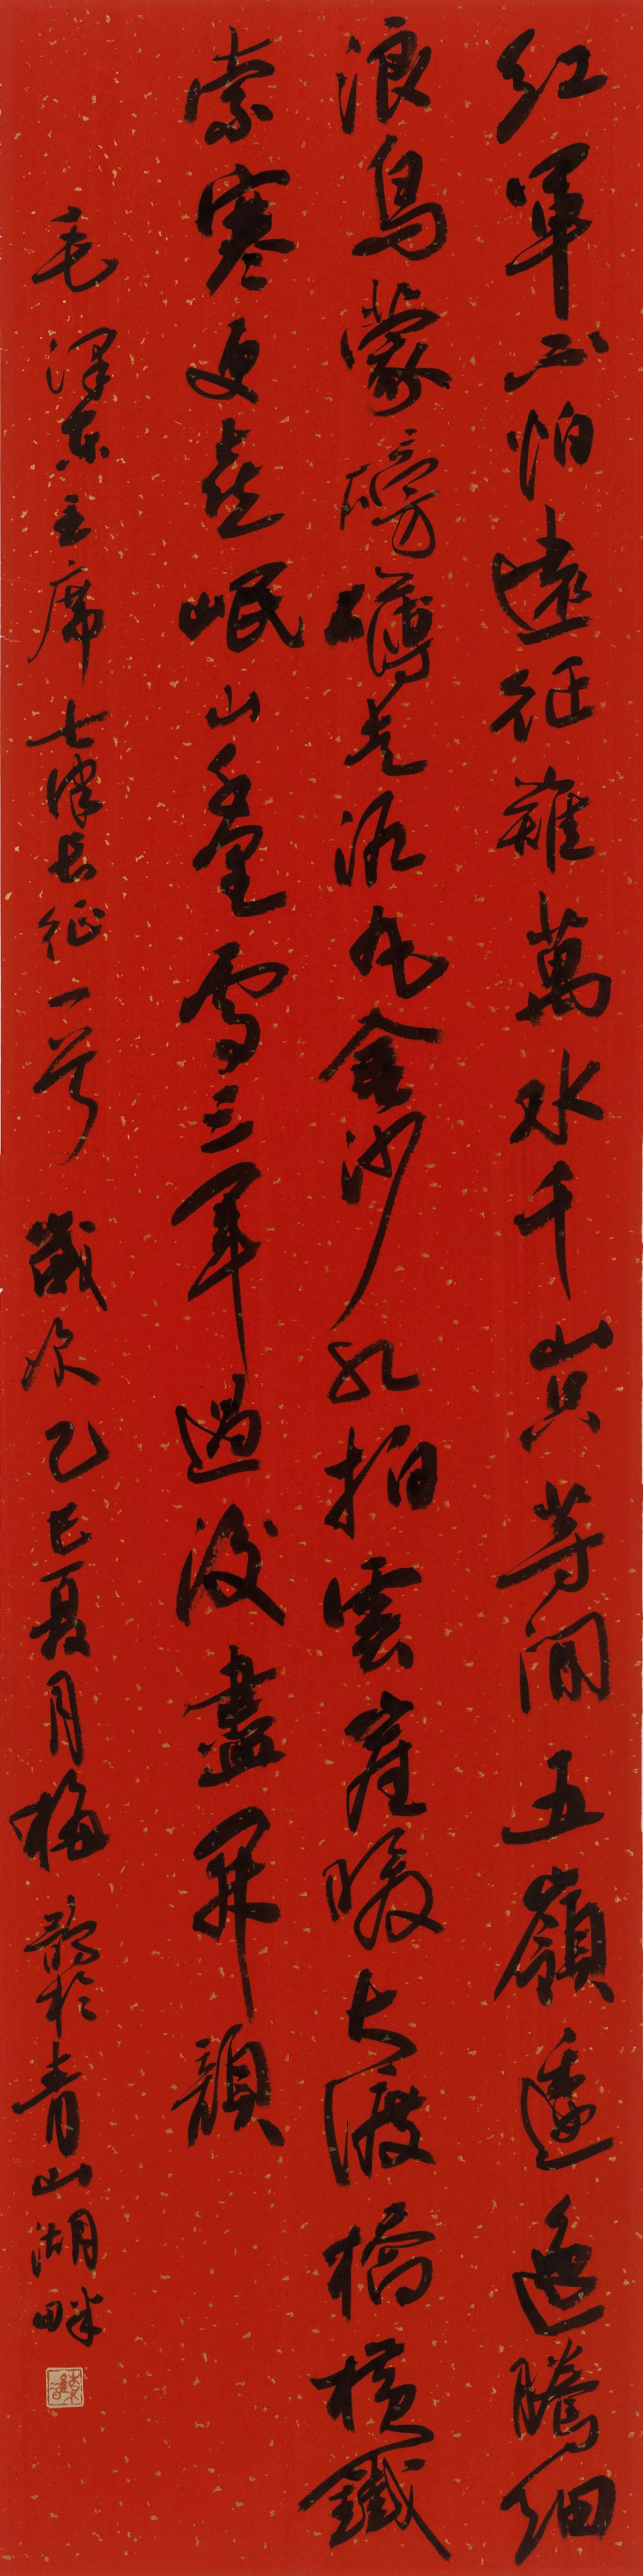 紅軍不怕遠征難萬水千山只等閒五嶺逶迤騰細
浪烏蒙磅礴走泥丸金沙水拍雲崖暖大渡橋橫鐵
索寒更喜岷山千里雪三軍過後盡開顏
毛澤東主席七律長征一首 歲次乙巳夏月梅於青山湖畔